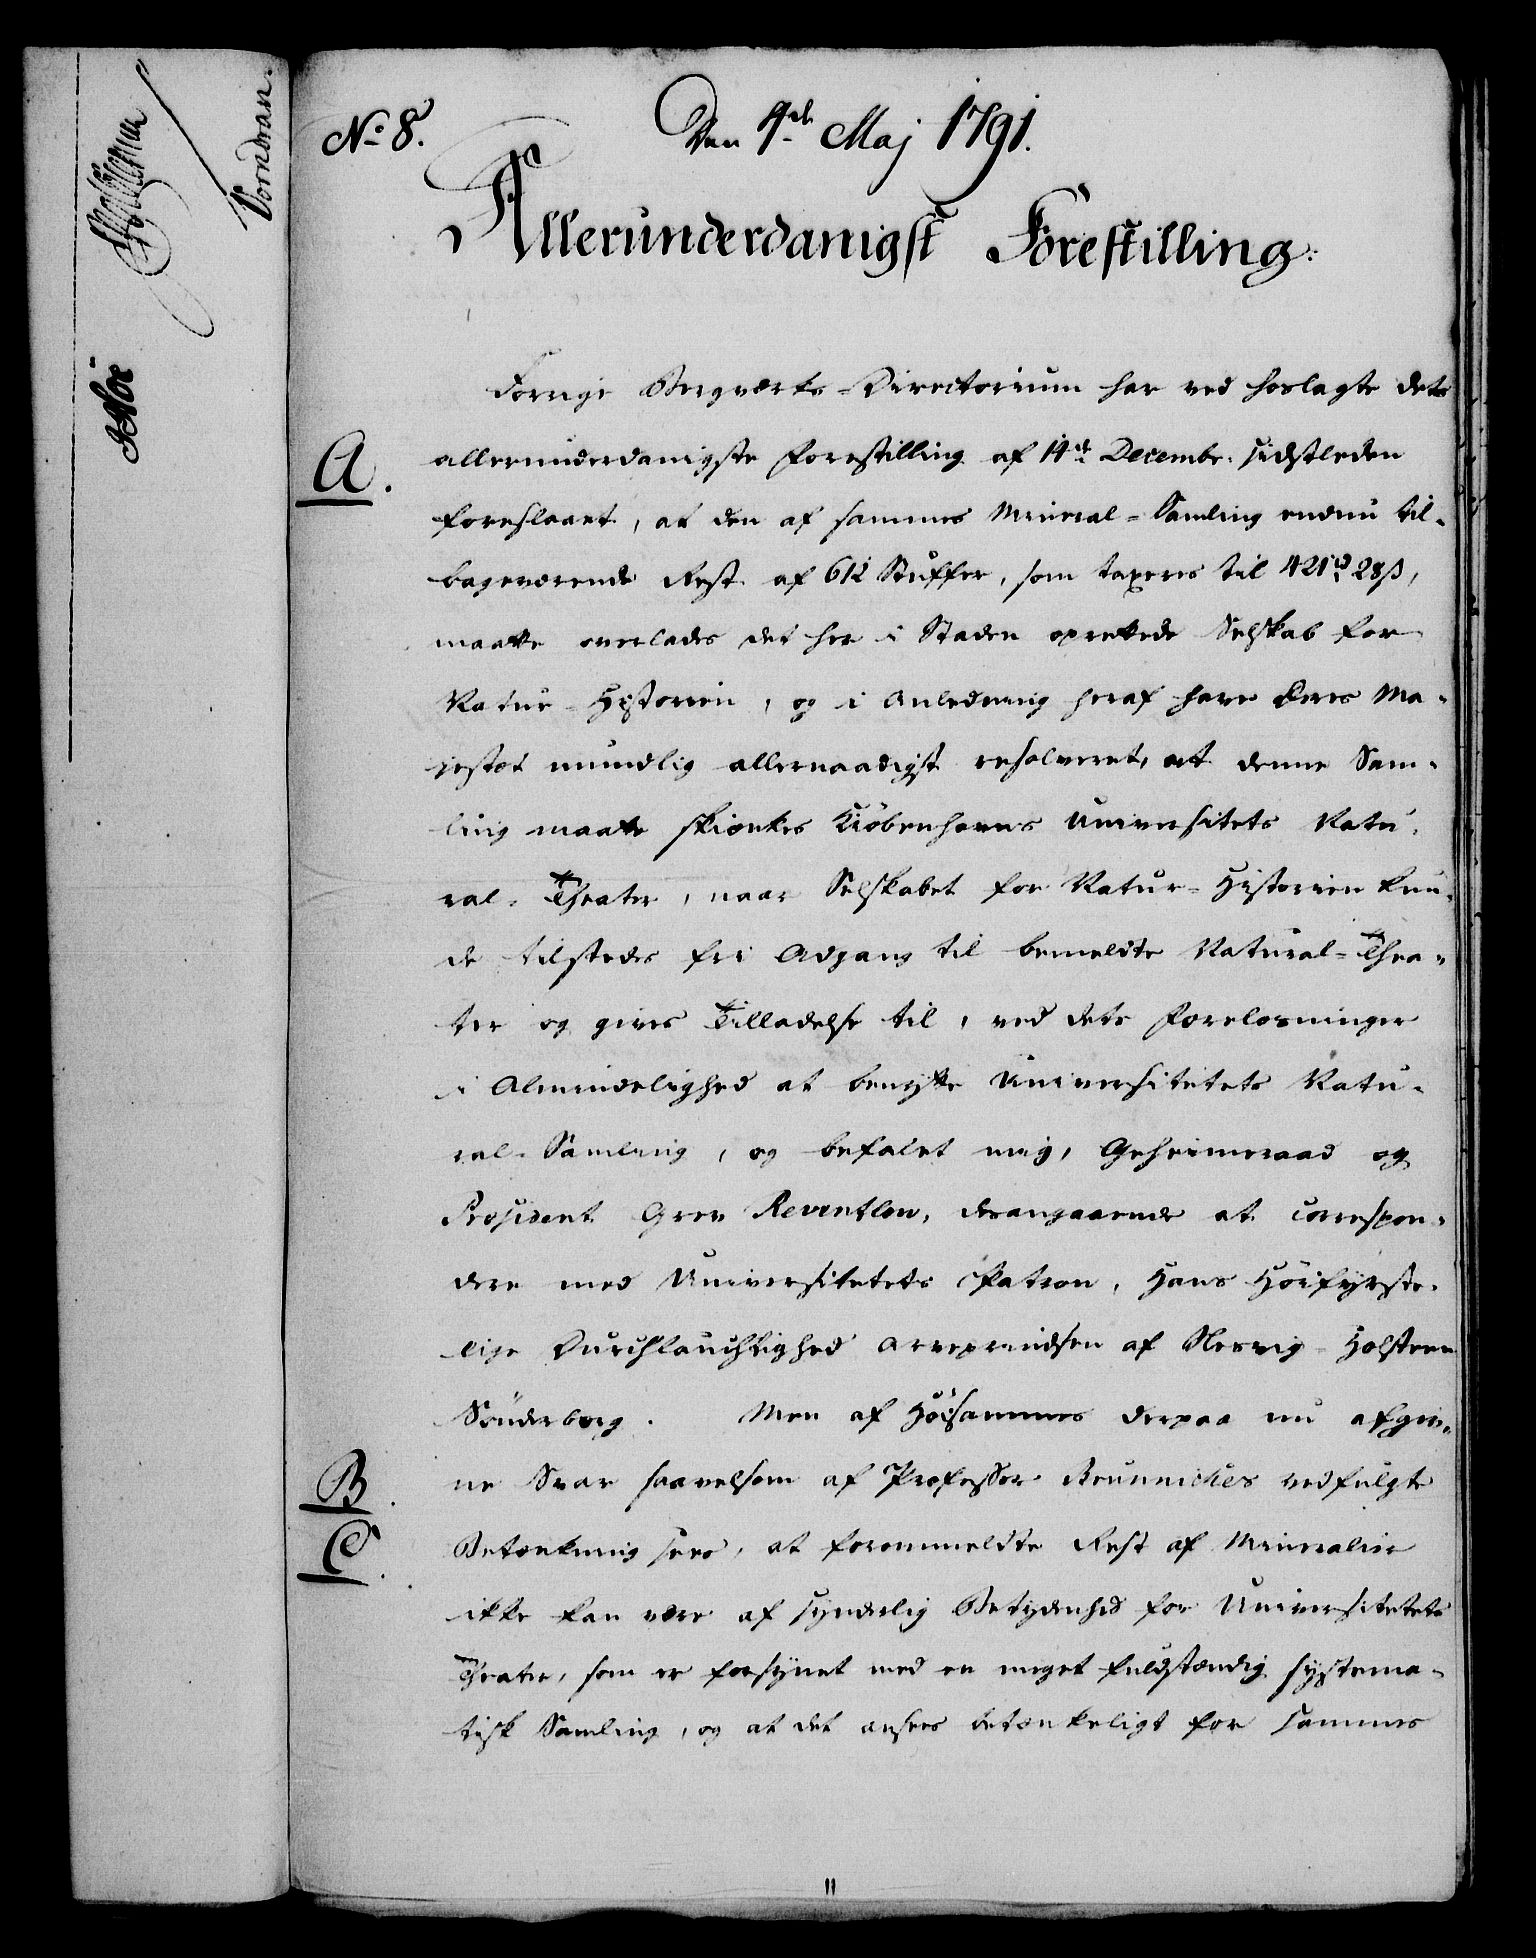 No 8.
Den 4de Maj 1791.
Allerunderdanigst Forestilling:
Forrige Bergværks-Directorium har ved hoslagte dets
A.
allerunderdanigste Forestilling af 14de Decembr. sidstleden
foreslaaet, at den af sammes Mineral-Samling endnu til-
bageværende Rest af 612 Stuffer, som taxeres til 421rd 28ß,
maatte overlades det her i Staden oprettede Selskab for
Natur-Historien, og i Anledning heraf have Deres Ma-
jestæt mundlig allernaadigst resolveret, at denne Sam-
ling maatte skienkes Kiöbenhavns Universitets Natu-
ral-Theater, naar Selskabet for Natur-Historien kun-
de tilstedes fri Adgang til bemeldte Natural-Thea-
ter og gives Tilladelse til, ved dets Forelæsninger
i Almindelighed at benytte Universitetets Natu-
ral-Samling, og befalet mig, Geheimeraad og
Præsident Grev Reventlow, desangaaende at correspon-
dere med Universitetets Patron, Hans Höifyrste-
lige Durchlauchtighed Arveprindsen af Slesvig-Holsteen
Sönderborg. Men af Höisammes derpaa nu afgiv-
B.
ne Svar saavelsom af Professor Brunniches vedfulgte
C.
Betænkning sees, at forommeldte Rest af Mineralier
ikke kan være af synderlig Betydenhed for Universitetets
Theater, som er forsynet med en meget fuldstændig systema-
tisk Samling, og at det ansees betænkeligt for sammes
11
Vorndran.